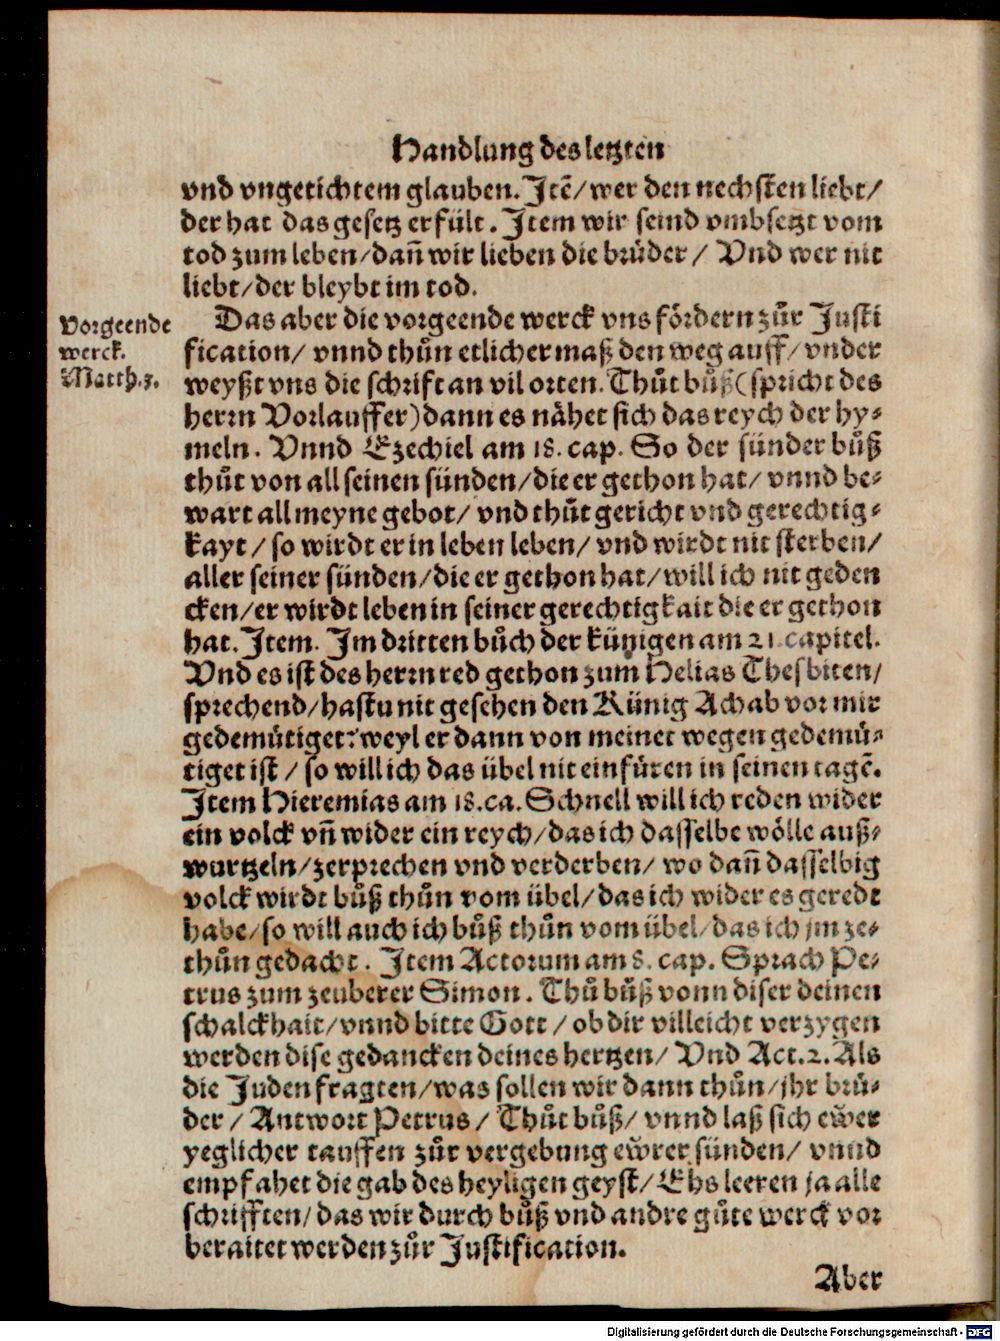 Handlung des letzten
vnd vngetichtem glauben. Jtē/wer den nechsten liebt/
der hat das gesetz erfült. Jtem wir seind vmbsetzt vom
tod zum leben/dañ wir lieben die brüder/ Vnd wer nit
liebt/der bleybt im tod.
Vorgeende
werck.
Matth.3.
Das aber die vorgeende werck vns fördern zůr Justi
fication/ vnnd thůn etlicher maß den weg auff/vnder
weyßt vns die schrift an vil orten. Thůt bůß(spricht des
herrn Vorlauffer)dann es nähet sich das reych der hy⸗
meln. Vnnd Ezechiel am 18. cap. So der sünder bůß
thůt von all seinen sünden/die er gethon hat/ vnnd be⸗
wart all meyne gebot/ vnd thůt gericht vnd gerechtig⸗
kayt/so wirdt er in leben leben/ vnd wirdt nit sterben/
aller seiner sünden/die er gethon hat/will ich nit geden
cken/er wirdt leben in seiner gerechtigkait die er gethon
hat. Jtem. Jm dritten bůch der künigen am 21.capitel.
Vnd es ist des herrn red gethon zum Helias Thesbiten/
sprechend/hastu nit gesehen den Künig Achab vor mir
gedemütiget:weyl er dann von meinet wegen gedemü⸗
tiget ist/so will ich das übel nit einfüren in seinen tagē.
Jtem Hieremias am 18.ca. Schnell will ich reden wider
ein volck vñ wider ein reych/das ich dasselbe wölle auß⸗
wurtzeln/zerprechen vnd verderben/ wo dañ dasselbig
volck wirdt bůß thůn vom übel/das ich wider es geredt
habe/so will auch ich bůß thůn vom übel/das ich jm ze⸗
thůn gedacht. Jtem Actorum am 8. cap. Sprach Pe⸗
trus zum zeuberer Simon. Thů bůß vonn diser deinen
schalckhait/vnnd bitte Gott/ob dir villeicht verzygen
werden dise gedancken deines hertzen/ Vnd Act.2. Als
die Juden fragten/was sollen wir dann thůn/jhr brü⸗
der/Antwort Petrus/Thůt bůß/ vnnd laß sich ew̌er
yeglicher tauffen zůr vergebung ew̌rer sünden/ vnnd
empfahet die gab des heyligen geyst/Ehs leeren ja alle
schrifften/das wir durch bůß vnd andre gůte werck vor
beraitet werden zůr Justification.
Aber
Digitalisierung gefördert durch die Deutsche Forschungsgemeinschaft - DFG